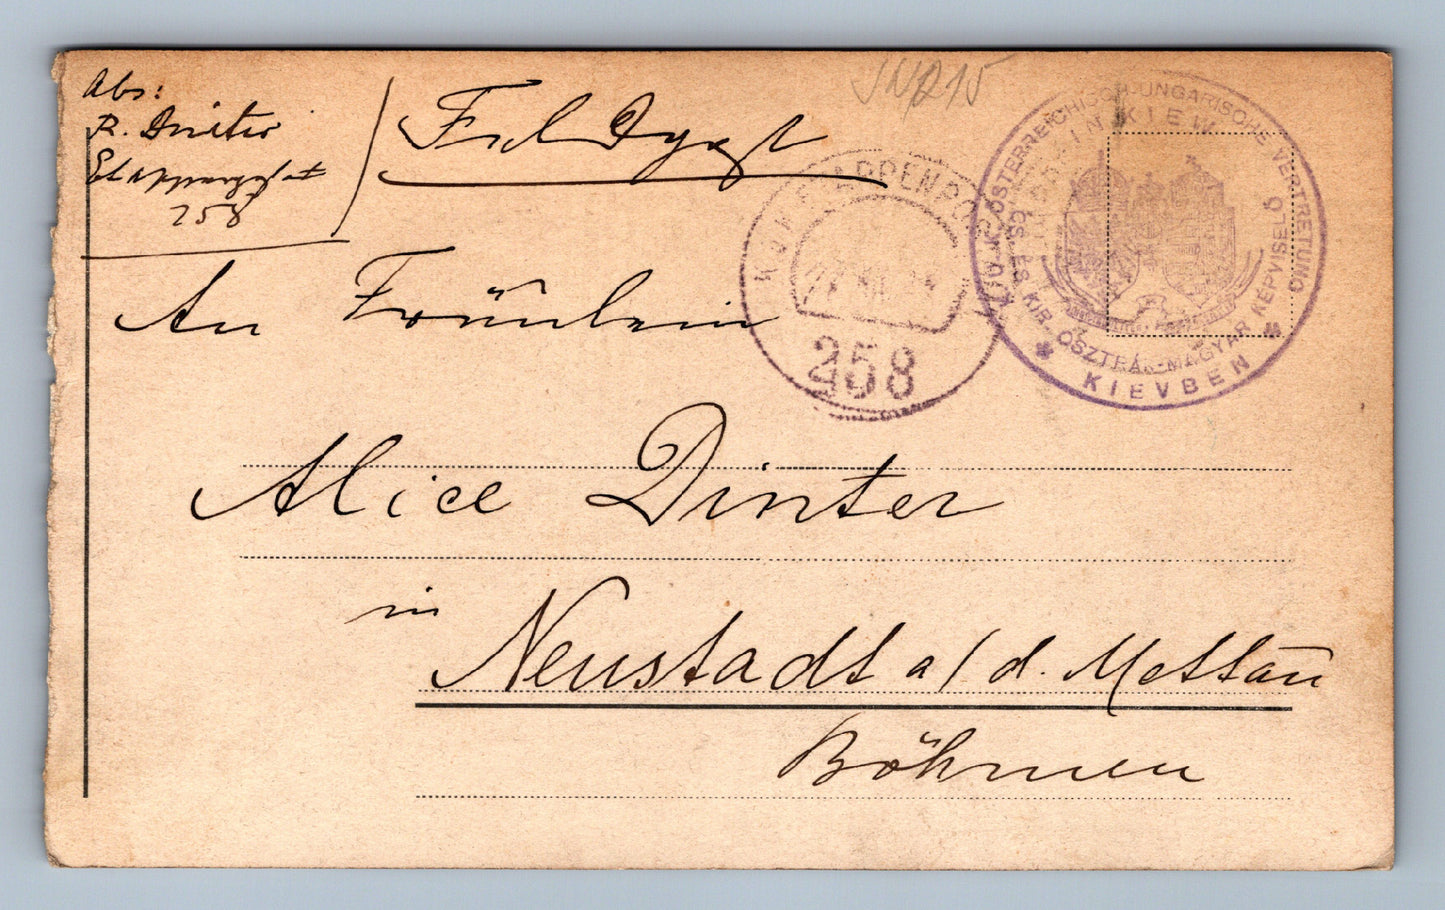 Abs:
R. Dinter
Etappenpost
258
Feldpost
An Fräulein
Alice Dinter
in
Neustadt a/d. Mettau
Böhmen
K.U.K. ETAPPENPOST
258
K.U.K. ÖSTERREICHISCH-UNGARISCHE VERTRETUNG
IN KIEW
CS. ÉS KIR. OSZTRÁK-MAGYAR KÉPVISELŐ
KIEVBEN